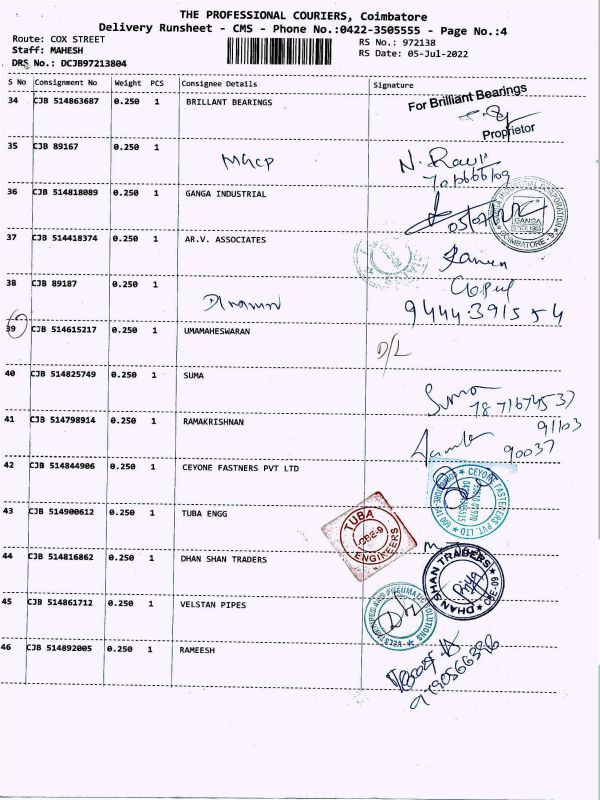 THE PROFESSIONAL COURIERS, Coimbatore
Delivery Runsheet - CMS - Phone No.:0422-3505555 - Page No.:4
Route: COX STREET
RS No.: 972138
Staff: MAHESH
RS Date: 05-Jul-2022
DRS No.: DCJB97213804
S No Consignment No Weight PCS Consignee Details Signature
34 CJB 514863687 0.250 1 BRILLANT BEARINGS
For Brilliant Bearings
Proprietor
35 CJB 89167 0.250 1
N. Ravi
36 CJB 514818089 0.250 1 GANGA INDUSTRIAL
GANGA
SINCE 1985
COIMBATORE - 9
37 CJB 514418374 0.250 1 AR.V. ASSOCIATES
Raman
38 CJB 89187 0.250 1
Gopul
9444391554
39 CJB 514615217 0.250 1 UMAMAHESWARAN
D/L
40 CJB 514825749 0.250 1 SUMA
Suma
7871674537
41 CJB 514798914 0.250 1 RAMAKRISHNAN
91103
90037
42 CJB 514844906 0.250 1 CEYONE FASTNERS PVT LTD
CEYONE FASTENERS PVT. LTD
43 CJB 514900612 0.250 1 TUBA ENGG
TUBA
CBE-9
ENGINEERS
44 CJB 514816862 0.250 1 DHAN SHAN TRADERS
DHAN SHAN TRADERS
CBE-09
45 CJB 514861712 0.250 1 VELSTAN PIPES
46 CJB 514892005 0.250 1 RAMEESH